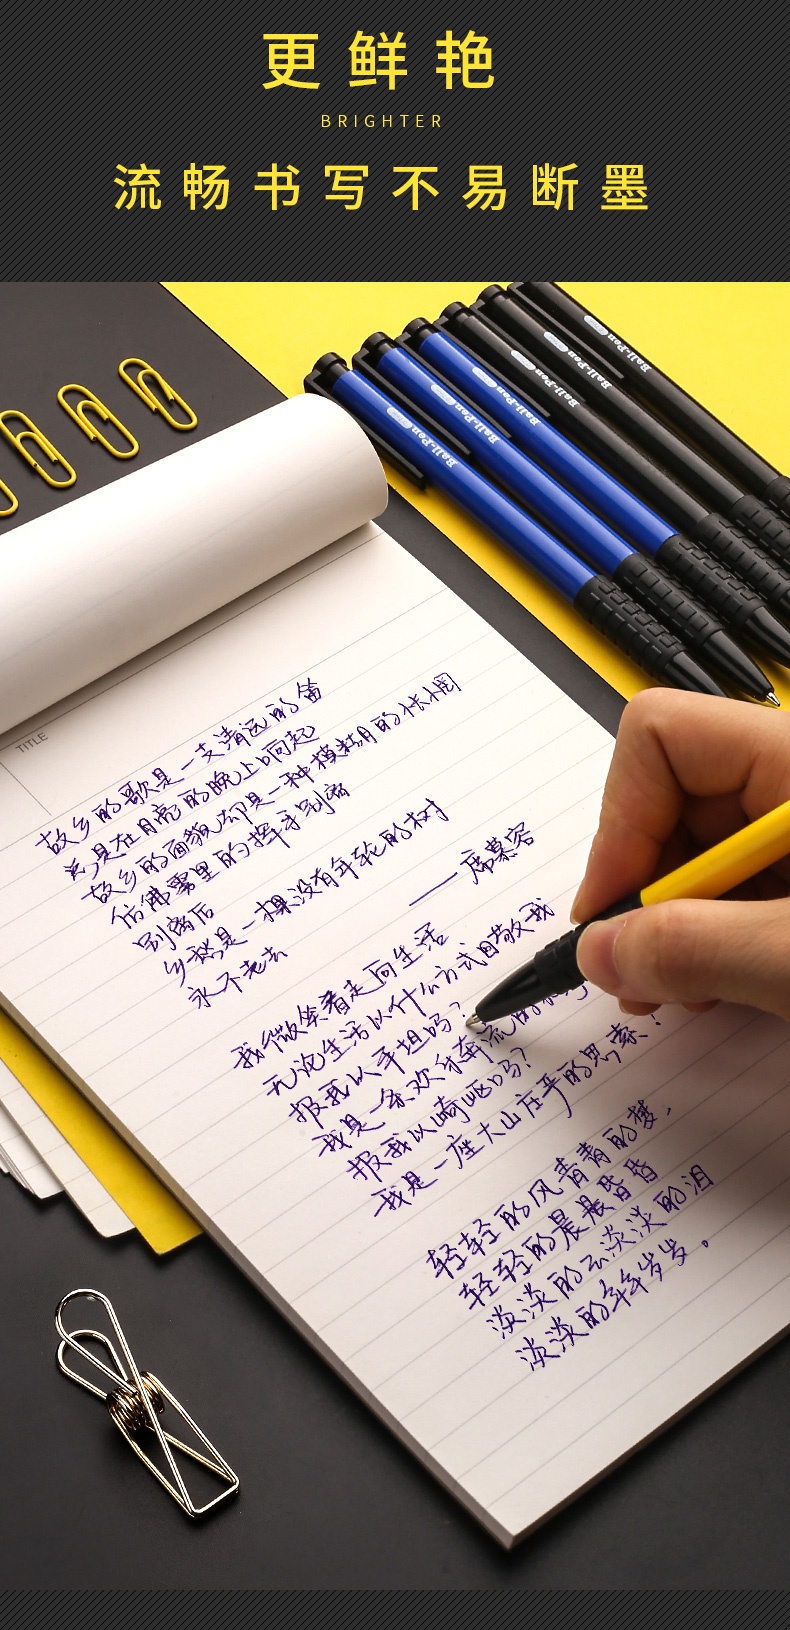 更鲜艳
BRIGHTER
流畅书写不易断墨
Ball-Pen
Ball-Pen
Ball-Pen
Ball-Pen
Ball-Pen
Ball-Pen
TITLE
故乡的歌是一支清远的笛
总是在月亮的晚上响起
故乡的面貌却是一种模糊的怅惘
仿佛雾里的挥手别离
别离后
乡愁是一棵没有年轮的树
永不老去
——席慕容
我微笑着走向生活
无论生活以什么方式回敬我
报我以平坦吗?
我是一条欢乐奔流的
报我以崎岖吗?
我是一座大山庄严的思索!
轻轻的风青青的梦,
轻轻的晨晨昏昏
淡淡的云淡淡的泪
淡淡的年年岁岁。